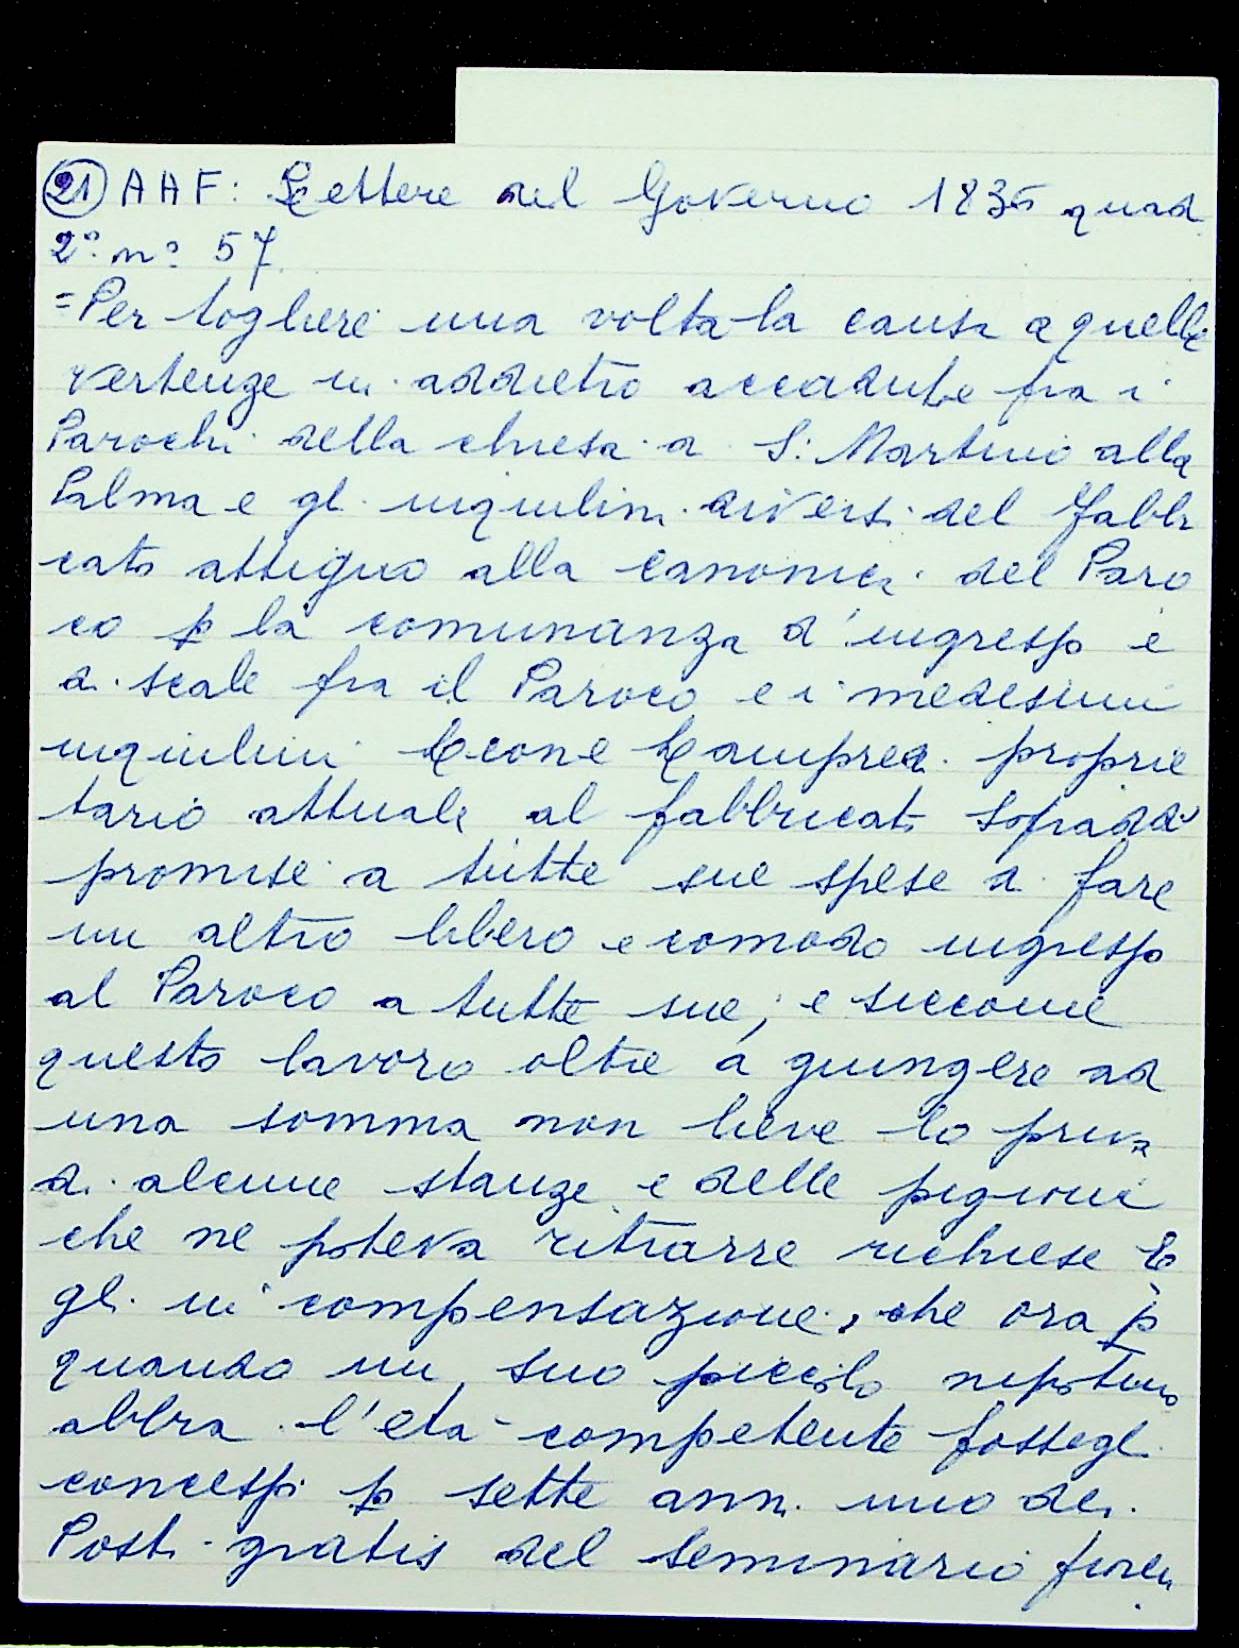 21 AAF: Lettere del Governo 1835 quad
2º. nº 57
=Per togliere una volta la causa a quelle
vertenze in addietro accadute fra i
Parochi della chiesa di S: Martino alla
Palma e gli inquilini diversi del fabbri
cato attiguo alla canonica del Paro
co p la comunanza d'ingresso e
di scale fra il Paroco e i medesimi
inquilini Leone proprie
tario attuale al fabbricato sopradd
promise a tutte sue spese di fare
un altro libero e comodo ingresso
al Paroco a tutte sue; e siccome
questo lavoro oltre a giungere ad
una somma non lieve lo priva
di alcune stanze e delle pigioni
che ne poteva ritrarre richiese E
gli in compensazione, che ora p
quando un suo piccolo nipotino
abbia l'età competente fossegli
concessi p sette anni uno dei
Posti gratis del Seminario fioren